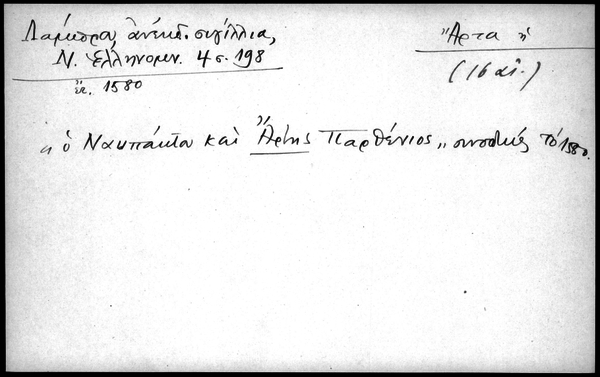 Λάμπρου, ἀνέκδ. σιγίλλια,
Ν. Ἑλληνομν. 4 σ. 198
ἔτ. 1580
Ἄρτα ἡ
(16 αἰ.)
„ ὁ Ναυπάκτου καὶ Ἄρτης Παρθένιος „ συνοδικῶς τὸ 1580.